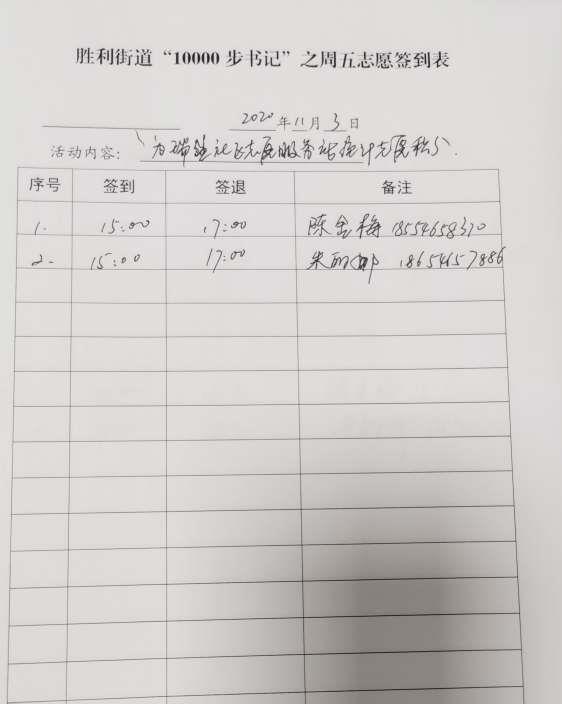 胜利街道“10000步书记”之周五志愿签到表
2020年11月3日
活动内容：为瑞铧社区志愿服务站统计志愿积分.
序号 签到 签退 备注
1. 15:00 17:00 陈金梅 18554658370
2. 15:00 17:00 朱丽娜 18654657886